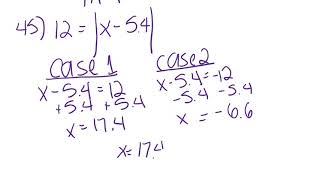 45) 12 = |x - 5.4|
case 1
x - 5.4 = 12
+5.4 +5.4
x = 17.4
case 2
x - 5.4 = -12
-5.4 -5.4
x = -6.6
x = 17.4